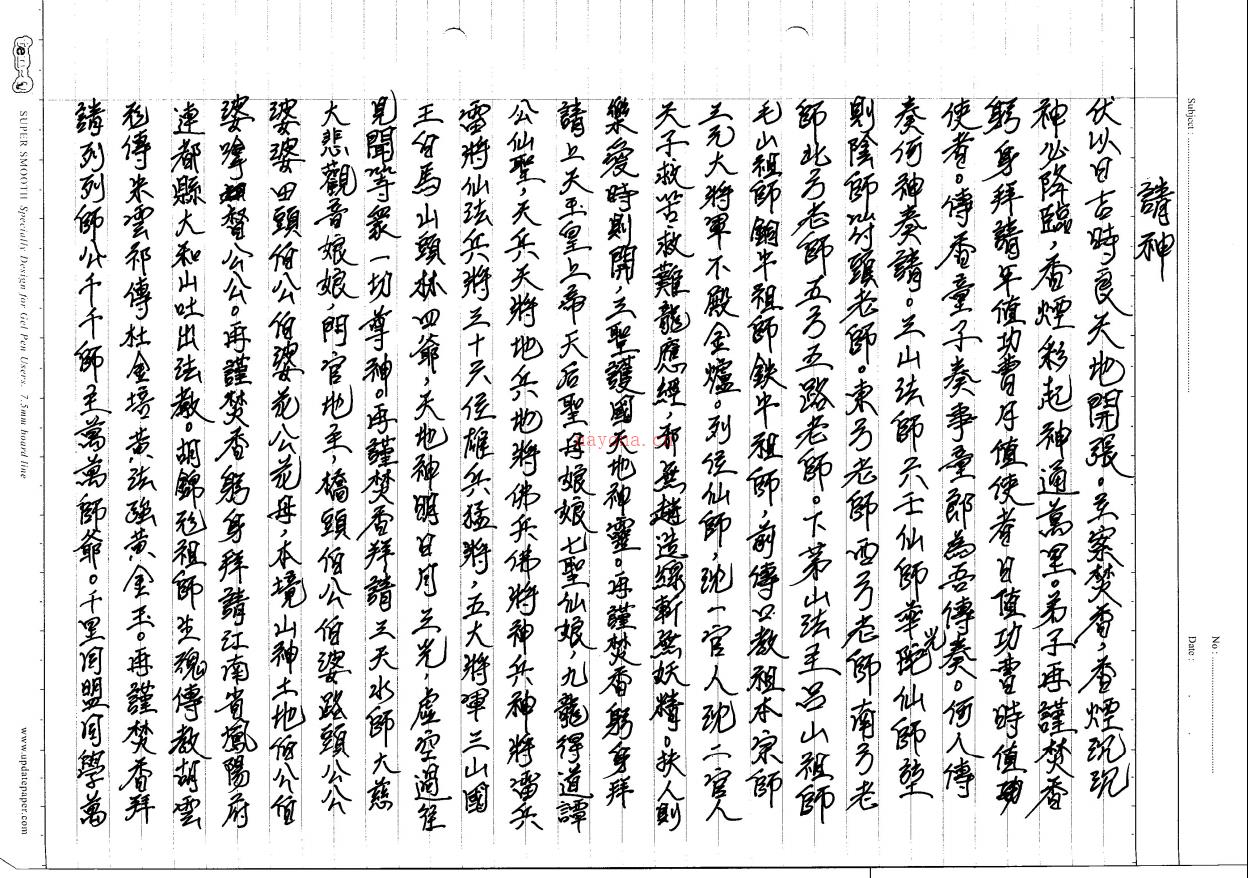 Subject :
No :
Date :
請神
伏以日吉時良天地開張。立案焚香，香煙沉沉
神必降臨，香煙彩起神通萬里。弟子再謹焚香
躬身拜請年值功曹月值使者日值功曹時值
使者。傳香童子奏事童郎為吾傳奏。何人傳
奏何神奏請。三山法師六壬仙師華陀仙師
則陰師竹頭老師。東方老師西方老師南方老
師北方老師五方五路老師。下茅山法主呂山祖師
毛山祖師銅牛祖師鉄牛祖師，前傳口教祖本宗師
三元大將軍不殿金爐。列位仙師，沈一官人沈二官人
天子救苦救難龍應經，邪無趙造緣斬無妖精。扶人則
樂愛時則開，三聖護國天地神靈。再謹焚香躬身拜
請上天玉皇上帝天后聖母娘娘七聖仙娘九龍得道譚
公仙聖，天兵天將地兵地將佛兵佛將神兵神將雷兵
雷將仙法兵將三十六位雄兵猛將，五大將軍三山國
王伯馬山頭林四爺，天地神明日月三光，虛空過往
見聞等眾一切尊神。再謹焚香拜請三天水師大慈
大悲觀音娘娘，門官地主橋頭伯公伯婆路頭公公
婆婆田頭伯公伯婆花公花母，本境山神土地伯公伯
婆 督公公。再謹焚香躬身拜請江南省鳳陽府
連都縣大和山吐出法教。胡錦彪祖師生魂傳教胡雲
彪傳朱雲祁傳杜金培黃法強黃金玉。再謹焚香拜
請列列師公千千師主萬萬師爺。千里同盟同學萬
SUPER SMOOTH Specially Design for Gel Pen Users. 7.5mm board line
www.updatepaper.com